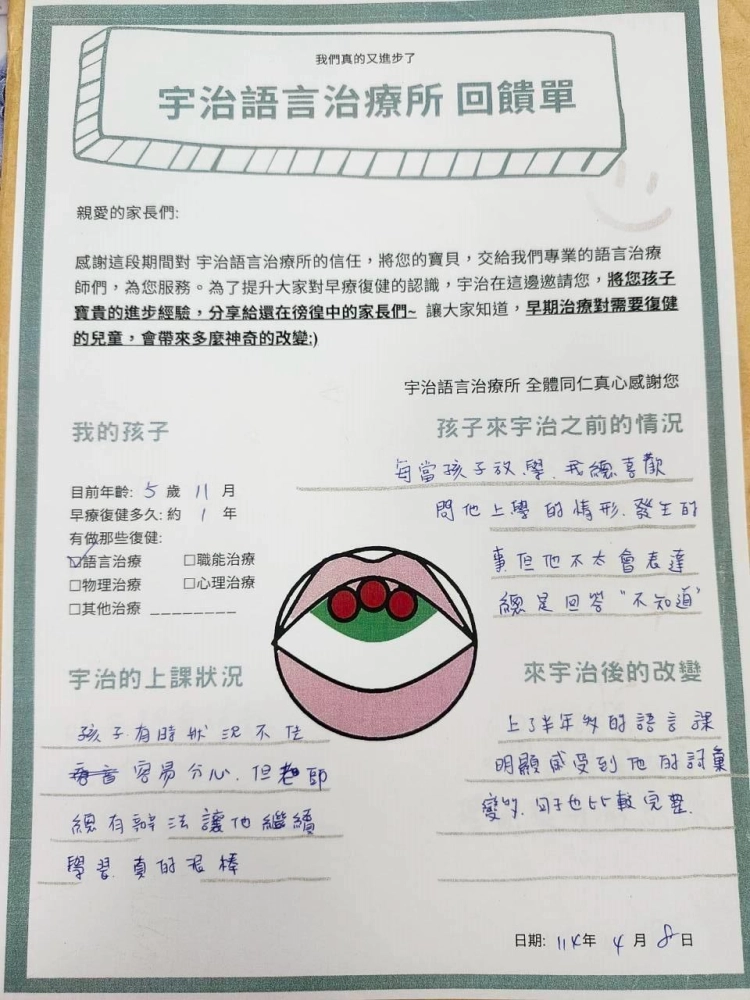 我們真的又進步了
宇治語言治療所 回饋單
親愛的家長們:
感謝這段期間對 宇治語言治療所的信任，將您的寶貝，交給我們專業的語言治療
師們，為您服務。為了提升大家對早療復健的認識，宇治在這邊邀請您，將您孩子
寶貴的進步經驗，分享給還在徬徨中的家長們~ 讓大家知道，早期治療對需要復健
的兒童，會帶來多麼神奇的改變:)
宇治語言治療所 全體同仁真心感謝您
我的孩子
目前年齡: 5 歲 11 月
早療復健多久: 約 1 年
有做那些復健:
☑語言治療 □職能治療
□物理治療 □心理治療
□其他治療 ________
孩子來宇治之前的情況
每當孩子放學，我總喜歡
問他上學的情形，發生的
事但他不太會表達
總是回答"不知道"
宇治的上課狀況
孩子有時狀況不佳
容易分心，但老師
總有辦法讓他繼續
學習，真的很棒
來宇治後的改變
上了半年多的語言課
明顯感受到他的詞彙
變多，句子也比較完整.
日期: 114年 4 月 8 日